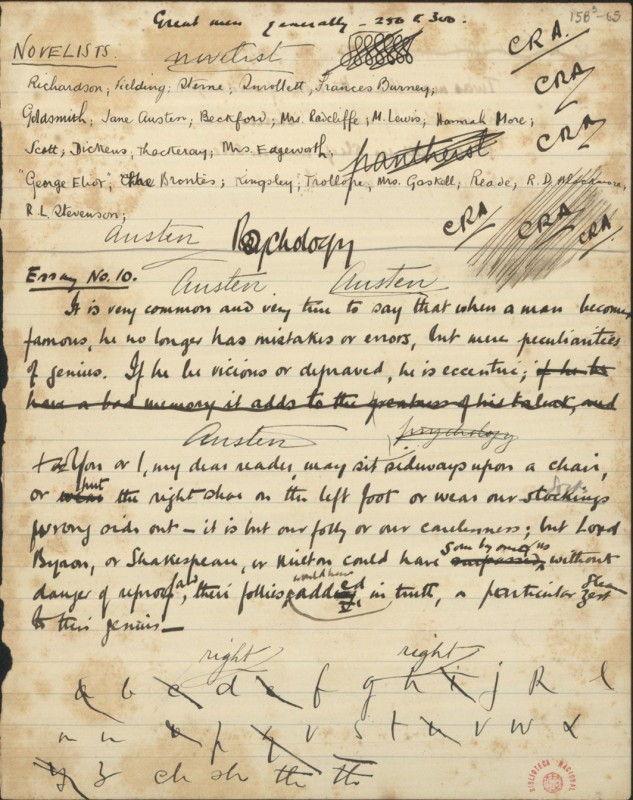 Great men generally - 250 to 300.
158³-65
NOVELISTS.
novelist
CRA.
Richardson; Fielding; Sterne; Smollett; Frances Burney;
CRA
Goldsmith; Jane Austen; Beckford; Mrs. Radcliffe; M. Lewis; Hannah More;
CRA
Scott; Dickens; Thackeray; Mrs. Edgeworth;
pantheist
"George Eliot"; the Brontes; Kingsley; Trollope; Mrs. Gaskell; Reade; R. D. Blackmore,
R. L. Stevenson;
CRA CRA CRA
Austen Psychology
Essay No. 10. Austen Austen
It is very common and very true to say that when a man becomes
famous, he no longer has mistakes or errors, but mere peculiarities
of genius. If he be vicious or depraved, he is eccentric; if he
have a bad memory it adds to the greatness of his talent, and
Austen psychology
You or I, my dear reader, may sit sideways upon a chair,
or put the right shoe on the left foot or wear our stockings
wrong side out - it is but our folly or our carelessness; but Lord
Byron, or Shakespeare, or Milton could have without
danger of reproof, their follies would have added in truth, a particular zest
to their genius -
right right
a b c d e f g h i j k l
m n o p q r s t u v w x
y z ch sh th th
BIBLIOTECA NACIONAL